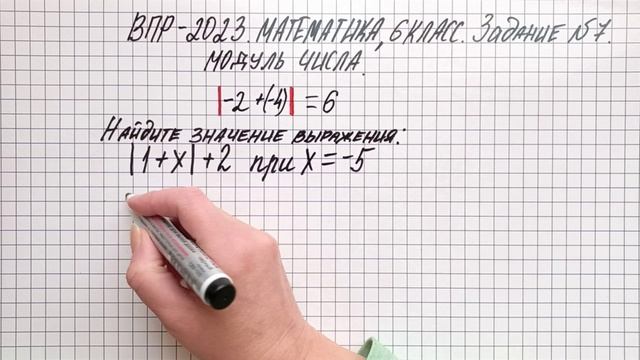 ВПР-2023. МАТЕМАТИКА, 6 КЛАСС. Задание №7.
МОДУЛЬ ЧИСЛА.
|-2+(-4)| = 6
Найдите значение выражения:
|1+x|+2 при x = -5